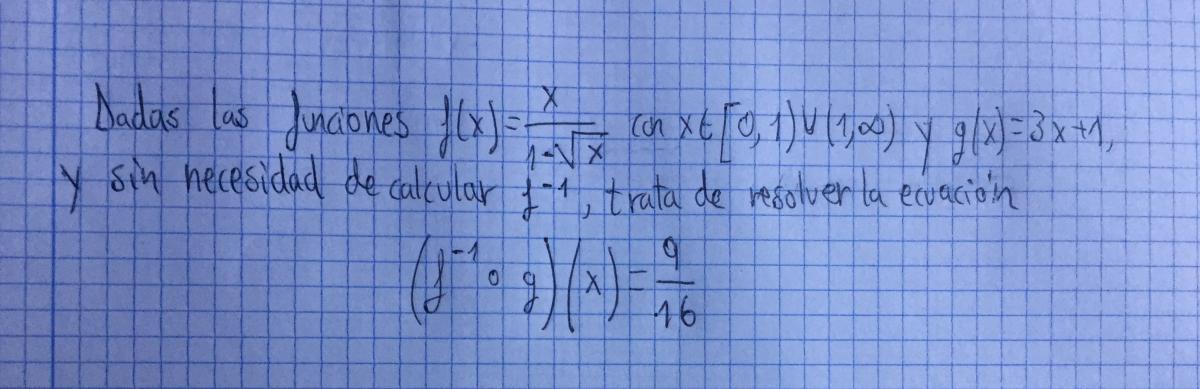 Dadas las funciones f(x)=x/(1-√x) con x∈[0,1)∪(1,∞) y g(x)=3x+1,
y sin necesidad de calcular f⁻¹, trata de resolver la ecuación
(f⁻¹∘g)(x)=9/16